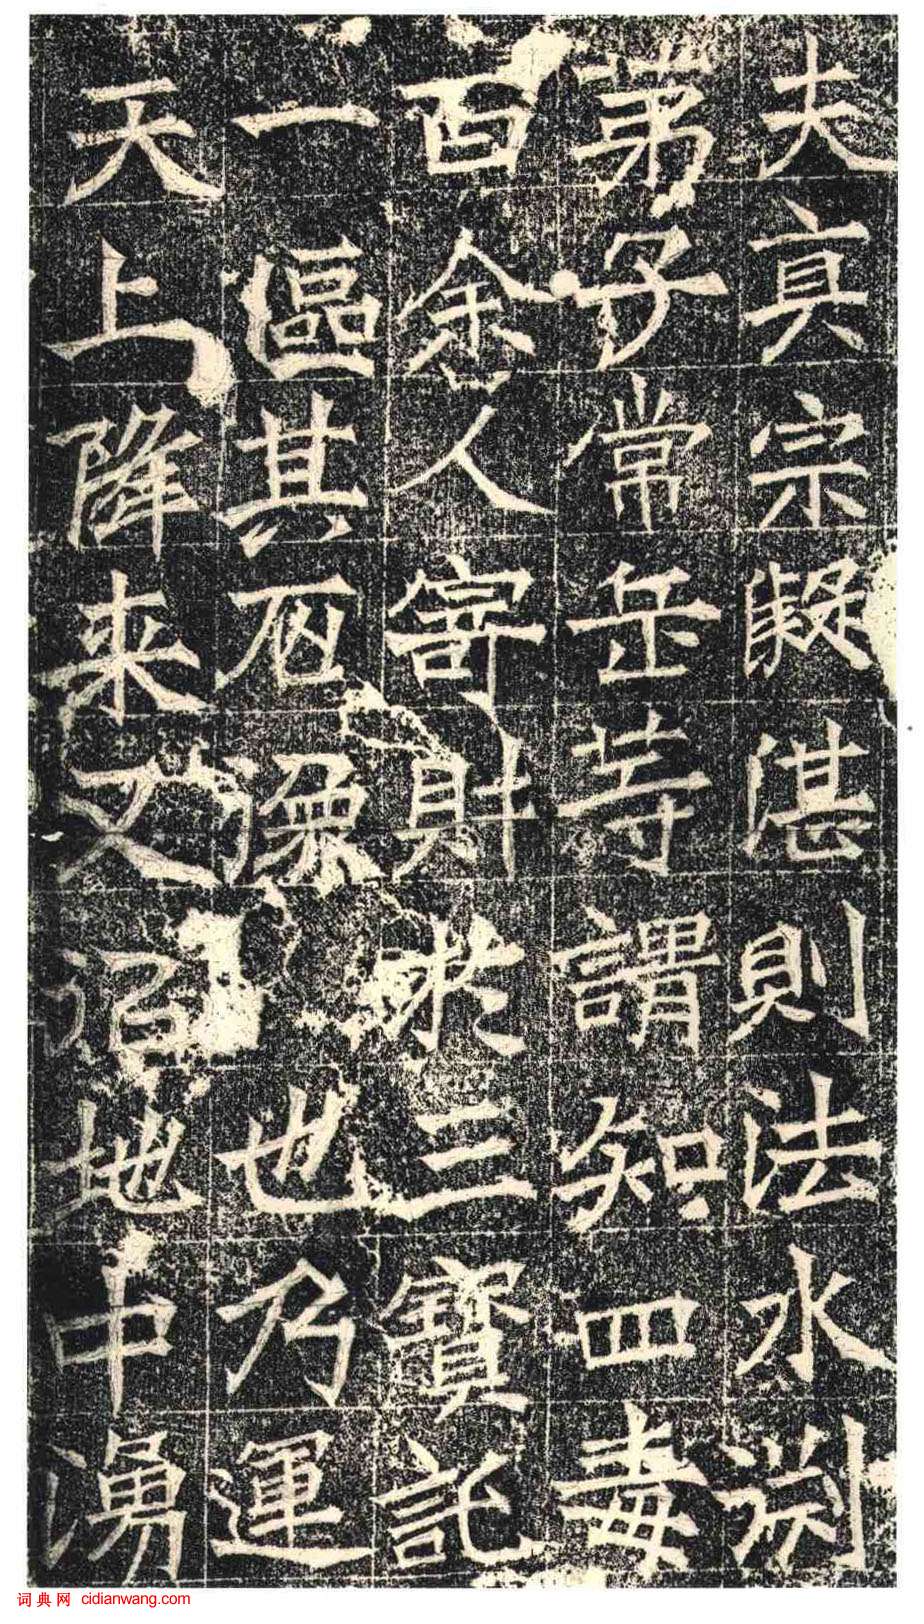 夫真宗凝湛則法水渕
苐子常岳等謂知四毒
百余人寄財於三寶託
一區其石像也乃運
天上降来又沼地中湧
词典网 cidianwang.com